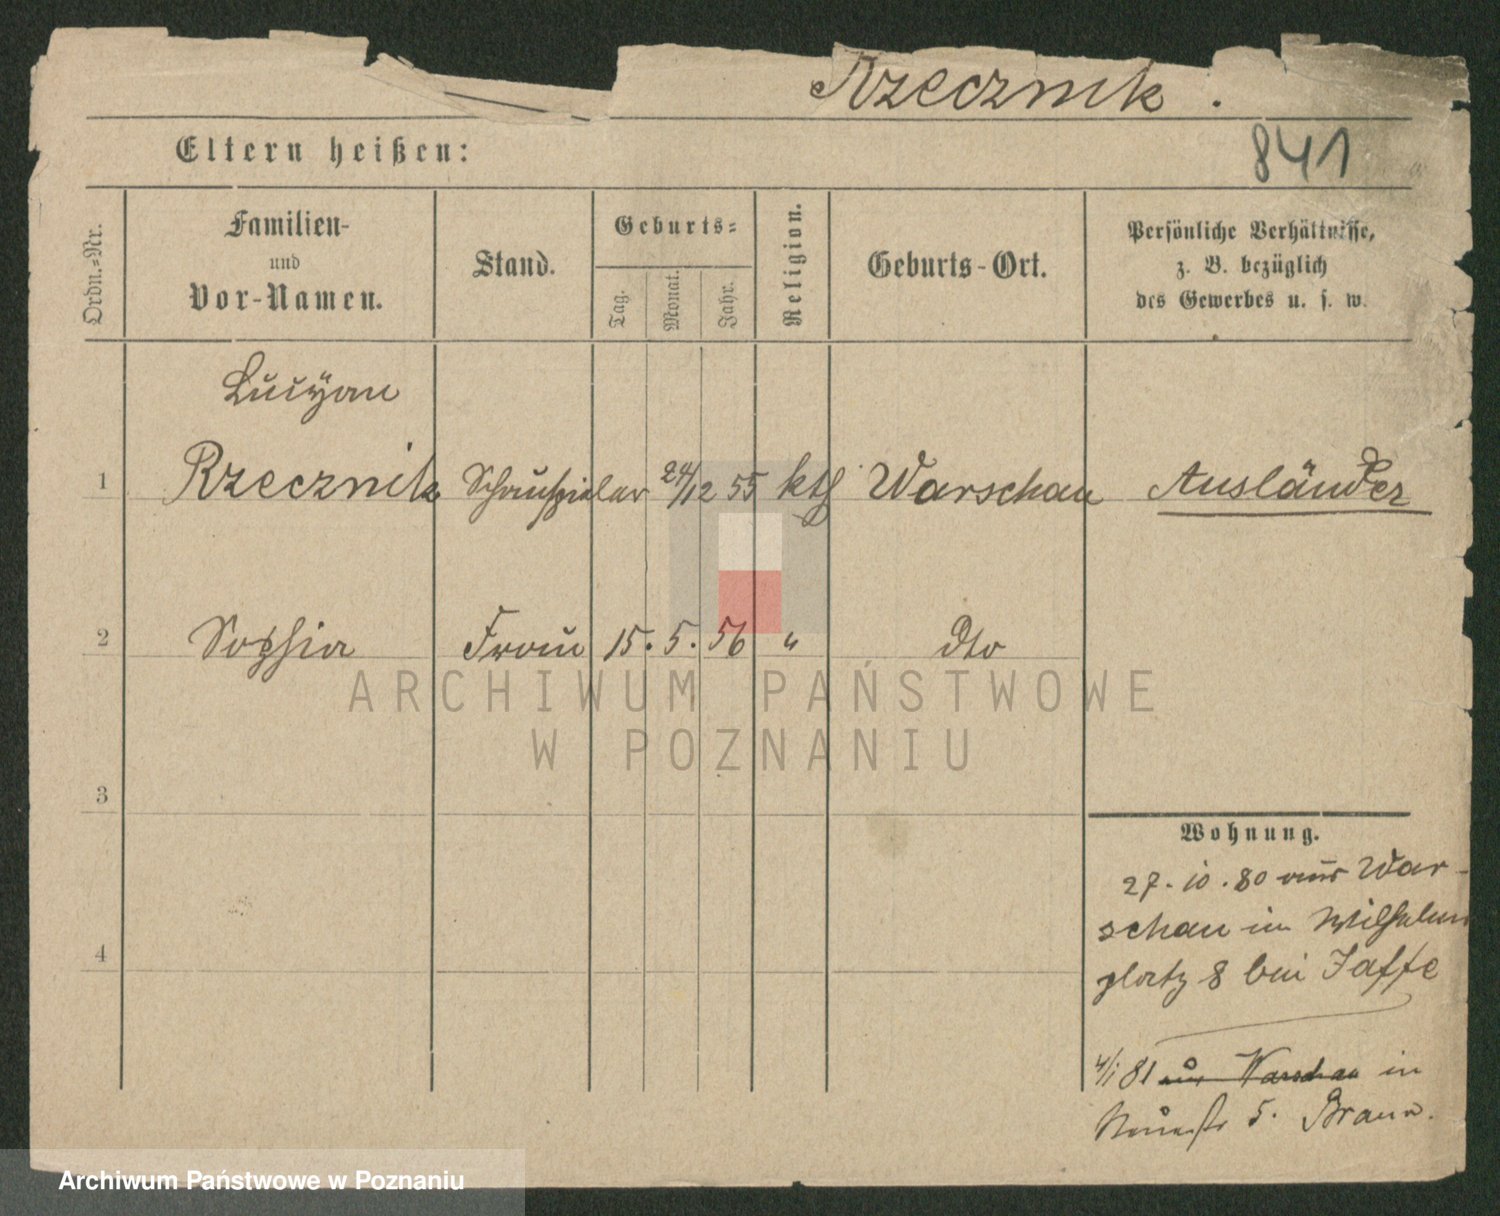 Rzecznik.
841
Eltern heißen:
Ordn.-Nr.
Familien-
und
Vor-Namen.
Stand.
Geburts-
Tag.
Monat.
Jahr.
Religion.
Geburts-Ort.
Persönliche Verhältnisse,
z. B. bezüglich
des Gewerbes u. s. w.
Lucÿan
1 Rzecznik Schauspieler 24/12 55 kth Warschau Ausländer
2 Sophia Frau 15. 5. 56 " dto
3
4
Wohnung.
27. 10. 80 aus War-
schau in Wilhelm
platz 8 bei Jaffe
4/1 81 aus Warschau in
5. Braun.
ARCHIWUM PAŃSTWOWE
W POZNANIU
Archiwum Państwowe w Poznaniu